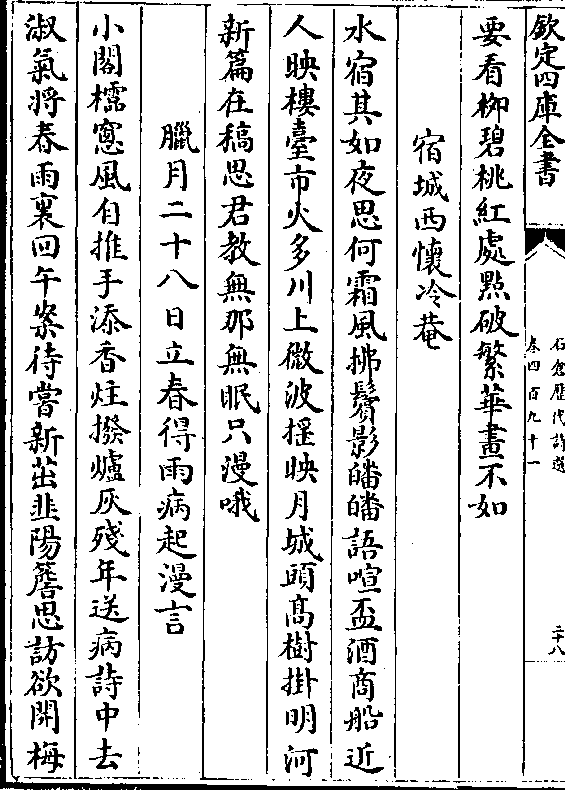 欽定四庫全書
石倉歷代詩選
卷四百九十一
二十八
要看栁碧桃紅處㸃破繁華畫不如
宿城西懷冷菴
水宿其如夜思何霜風拂鬢影皤皤語喧盃酒商船近
人映樓臺市火多川上微波揺映月城頭髙樹掛明河
新篇在稿思君教無那無眠只漫哦
臘月二十八日立春得雨病起漫言
小閣櫺窻風自推手添香炷撥爐灰殘年送病詩中去
淑氣將春雨裏回午案待嘗新茁韭陽簷思訪欲開梅